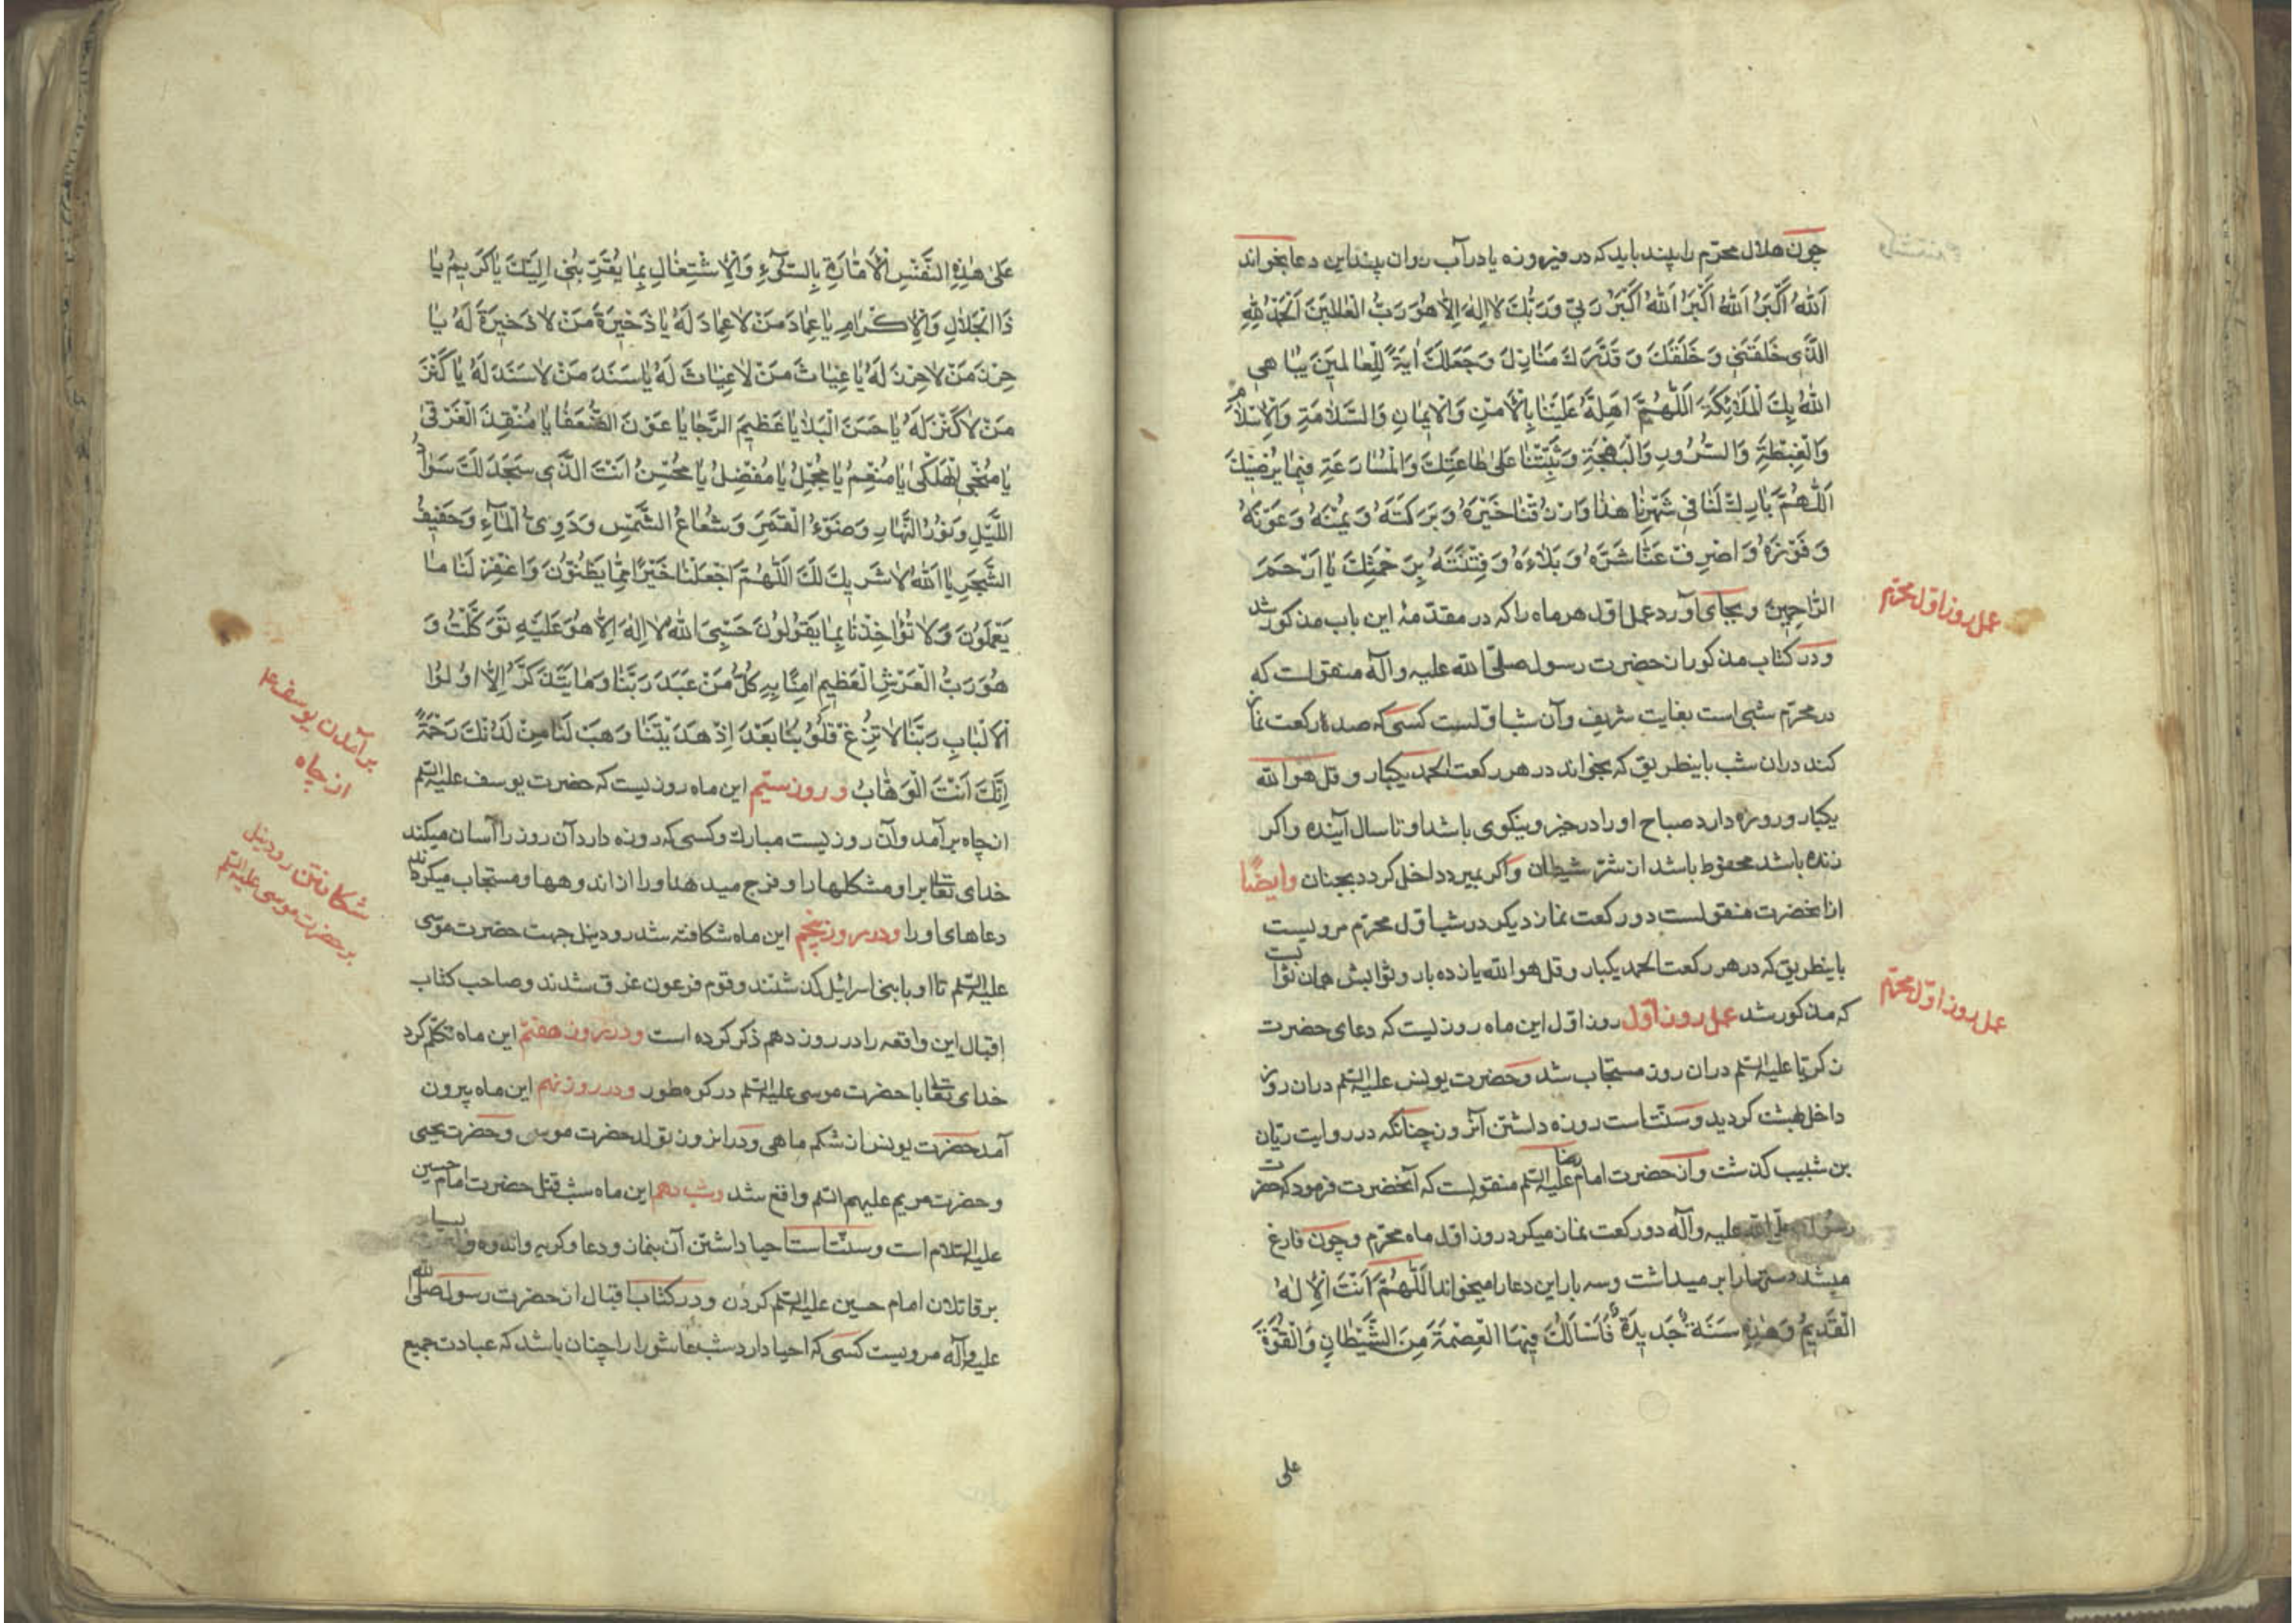 چون هلال محرم را بیند باید که در فیروزه یا در آب روان بیند این دعا بخواند
اَللّٰهُ اَكْبَرُ اَللّٰهُ اَكْبَرُ اَللّٰهُ اَكْبَرُ رَبّي وَرَبُّكَ لا اِلٰهَ اِلّا هُوَ رَبُّ الْعٰالَمينَ اَلْحَمْدُ لِلّٰهِ
الَّذي خَلَقَني وَ خَلَقَكَ وَ قَدَّرَكَ مَنٰازِلَ وَجَعَلَكَ اٰيَةً لِلْعٰالَمينَ يُبٰاهي
اللّٰهُ بِكَ الْمَلٰائِكَةَ اَللّٰهُمَّ اَهِلَّهُ عَلَيْنٰا بِالْاَمْنِ وَالْايمٰانِ وَالسَّلٰامَةِ وَالْاِسْلٰامِ
وَالْغِبْطَةِ وَالسُّرُورِ وَالْبَهْجَةِ وَثَبِّتْنٰا عَلىٰ طٰاعَتِكَ وَالْمُسٰارَعَةِ فيمٰا يُرْضيكَ
اَللّٰهُمَّ بٰارِكْ لَنٰا في شَهْرِنٰا هٰذٰا وَارْزُقْنٰا خَيْرَهُ وَبَرَكَتَهُ وَيُمْنَهُ وَعَوْنَهُ
وَفَوْزَهُ وَاصْرِفْ عَنّٰا شَرَّهُ وَبَلٰاءَهُ وَفِتْنَتَهُ بِرَحْمَتِكَ يٰا اَرْحَمَ
الرّٰاحِمينَ و بجای آورد عمل اول هر ماه را که در مقدمهٔ این باب مذکور شد
عمل روز اول محرم
و در کتاب مذکور از حضرت رسول صلی الله علیه و آله منقولست که
در محرم شبی است بغایت شریف و آن شب اولست کسی که صد رکعت نماز
کند در ان شب باینطریق که بخواند در هر رکعت الحمد یکبار و قل هو الله
یکبار و روزه دارد صباح او را در خیر و نیکوی باشد او تا سال آینده و اگر
زنده باشد محفوظ باشد از شر شیطان و اگر بمیرد داخل کردد بجنان وایضًا
از انحضرت منقولست دو رکعت نماز دیکر در شب اول محرم مرویست
باینطریق که در هر رکعت الحمد یکبار و قل هو الله یازده بار و ثوابش همان ثوابست
که مذکور شد عمل روز اول روز اول این ماه روزیست که دعای حضرت
عمل روز اول محرم
زکریا علیه السلم در ان روز مستجاب شد و حضرت یونس علیه السلم در ان روز
داخل بهشت کردید و سنت است روزه داشتن آنروز چنانکه در روایت ریان
بن شبیب کذشت و از حضرت امام رضا علیه السلم منقولست که آنحضرت فرمود که حضرت
رسول صلی الله علیه و آله دو رکعت نماز میکرد روز اول ماه محرم و چون فارغ
میشد دستها را بر میداشت و سه بار این دعا را میخواند اَللّٰهُمَّ اَنْتَ الْاِلٰهُ
الْقَديمُ وَهٰذِهِ سَنَةٌ جَديدَةٌ فَاَسْأَلُكَ فيهَا الْعِصْمَةَ مِنَ الشَّيْطٰانِ وَالْقُوَّةَ
علی
عَلىٰ هٰذِهِ النَّفْسِ الْاَمّٰارَةِ بِالسُّوءِ وَالْاِشْتِغٰالِ بِمٰا يُقَرِّبُني اِلَيْكَ يٰا كَريمُ يٰا
ذَا الْجَلٰالِ وَالْاِكْرٰامِ يٰا عِمٰادَ مَنْ لٰا عِمٰادَ لَهُ يٰا ذَخيرَةَ مَنْ لٰا ذَخيرَةَ لَهُ يٰا
حِرْزَ مَنْ لٰا حِرْزَ لَهُ يٰا غِيٰاثَ مَنْ لٰا غِيٰاثَ لَهُ يٰا سَنَدَ مَنْ لٰا سَنَدَ لَهُ يٰا كَنْزَ
مَنْ لٰا كَنْزَ لَهُ يٰا حَسَنَ الْبَلٰا يٰا عَظيمَ الرَّجٰا يٰا عَوْنَ الضُّعَفٰا يٰا مُنْقِذَ الْغَرْقىٰ
يٰا مُنْجِيَ الْهَلْكىٰ يٰا مُنْعِمُ يٰا مُجْمِلُ يٰا مُفْضِلُ يٰا مُحْسِنُ اَنْتَ الَّذي سَجَدَ لَكَ سَوٰادُ
اللَّيْلِ وَنُورُ النَّهٰارِ وَضَوْءُ الْقَمَرِ وَشُعٰاعُ الشَّمْسِ وَدَوِيُّ الْمٰاءِ وَحَفيفُ
الشَّجَرِ يٰا اَللّٰهُ لٰا شَريكَ لَكَ اَللّٰهُمَّ اجْعَلْنٰا خَيْرًا مِمّٰا يَظُنُّونَ وَاغْفِرْ لَنٰا مٰا
يَعْلَمُونَ وَلٰا تُؤٰاخِذْنٰا بِمٰا يَقُولُونَ حَسْبِيَ اللّٰهُ لٰا اِلٰهَ اِلّٰا هُوَ عَلَيْهِ تَوَكَّلْتُ وَ
هُوَ رَبُّ الْعَرْشِ الْعَظيمِ اٰمَنّٰا بِهِ كُلٌّ مِنْ عِنْدِ رَبِّنٰا وَمٰا يَذَّكَّرُ اِلّٰا اُولُوا
الْاَلْبٰابِ رَبَّنٰا لٰا تُزِغْ قُلُوبَنٰا بَعْدَ اِذْ هَدَيْتَنٰا وَهَبْ لَنٰا مِنْ لَدُنْكَ رَحْمَةً
برآمدن یوسف ع
از چاه
اِنَّكَ اَنْتَ الْوَهّٰابُ و روز سیم این ماه روزیست که حضرت یوسف علیه السلم
از چاه برآمد و آن روزیست مبارک و کسی که روزه دارد آن روز را آسان میکند
خدای تعالی بر او مشکلها را و فرج میدهد او را از اندوهها و مستجاب میکرداند
شکافتن رود نیل
بر حضرت موسی علیه السلم
دعاهای او را و در روز پنجم این ماه شکافته شد رود نیل جهت حضرت موسی
علیه السلم تا او با بنی اسرائیل کذشتند و قوم فرعون غرق شدند و صاحب کتاب
اقبال این واقعه را در روز دهم ذکر کرده است و در روز هفتم این ماه تکلم کرد
خدای تعالی با حضرت موسی علیه السلم در کوه طور و در روز نهم این ماه بیرون
آمد حضرت یونس از شکم ماهی و در این روز تولد حضرت موسی و حضرت یحیی
و حضرت مریم علیهم السلم واقع شد و شب دهم این ماه شب قتل حضرت امام حسین
علیه السلام است و سنت است احیا داشتن آن بنماز و دعا و کریه و اندوه و لعنت بسیار
بر قاتلان امام حسین علیه السلم کردن و در کتاب اقبال از حضرت رسول صلی الله
علیه و آله مرویست کسی که احیا دارد شب عاشورا را چنان باشد که عبادت جمیع